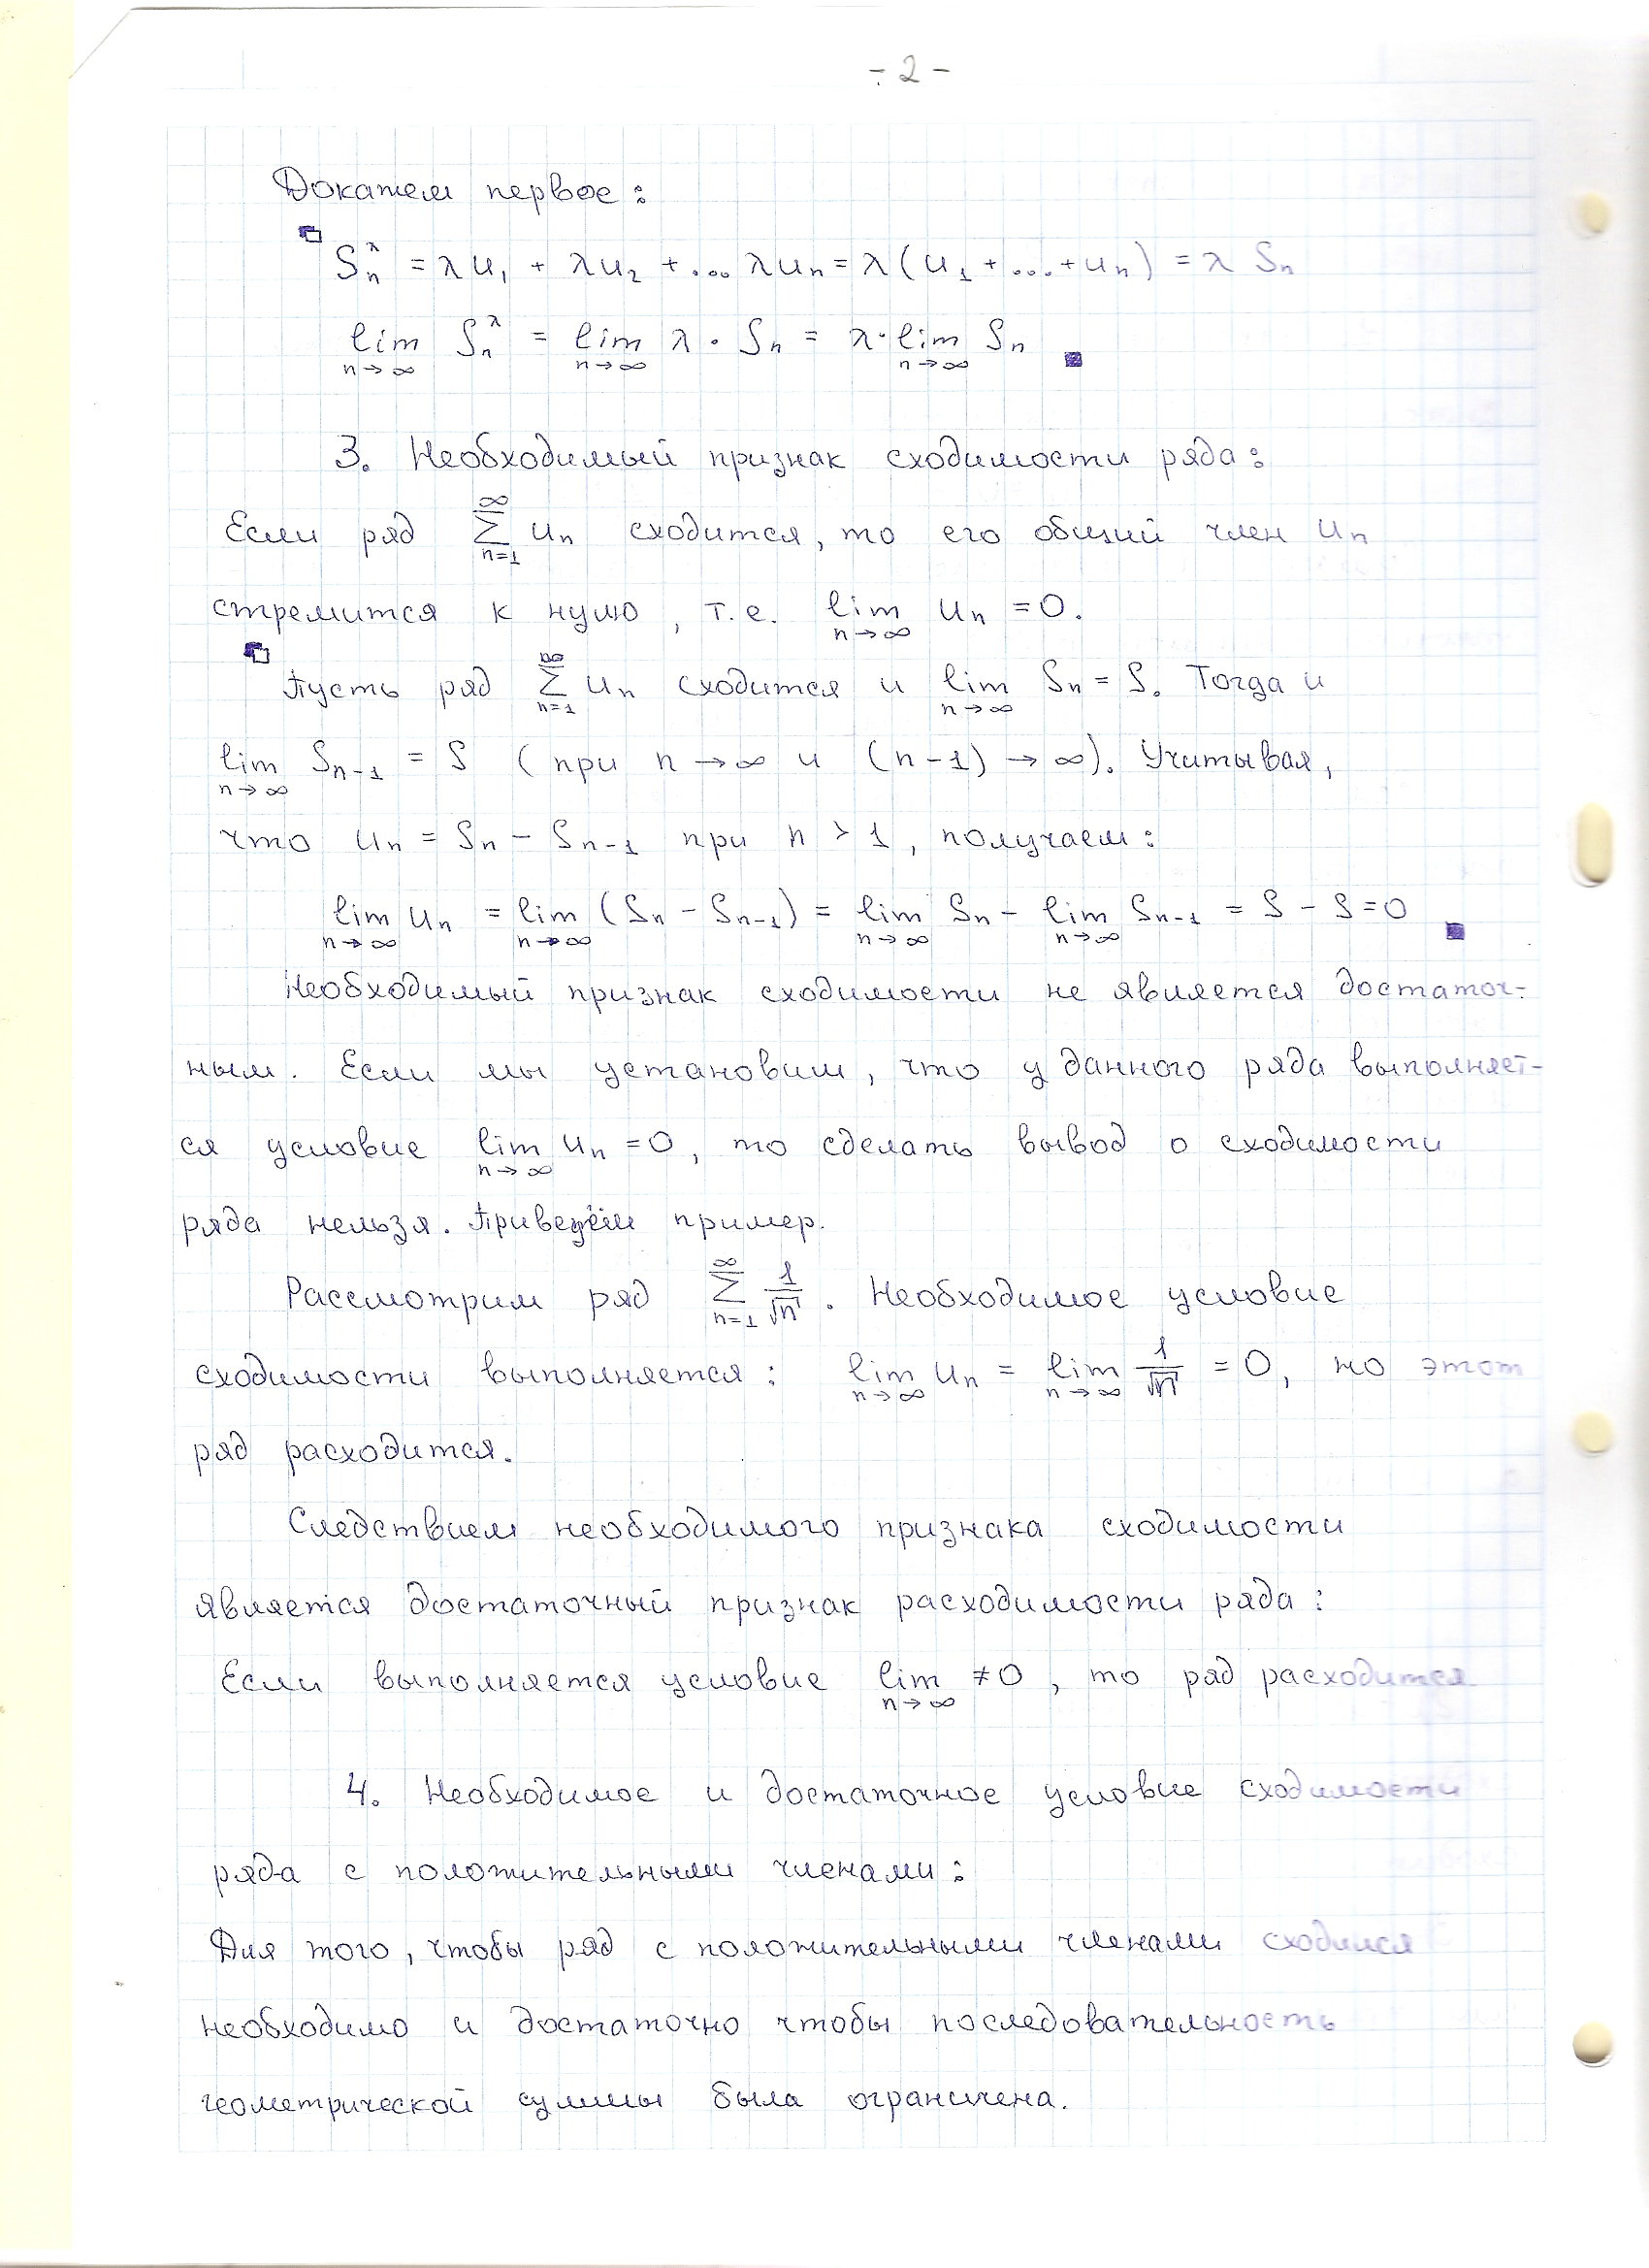 - 2 -
Докажем первое:
Sₙ^λ = λu₁ + λu₂ + ... λuₙ = λ(u₁ + ... + uₙ) = λ Sₙ
lim n→∞ Sₙ^λ = lim n→∞ λ · Sₙ = λ · lim n→∞ Sₙ
3. Необходимый признак сходимости ряда:
Если ряд ∑ n=1 ∞ uₙ сходится, то его общий член uₙ
стремится к нулю, т.е. lim n→∞ uₙ = 0.
Пусть ряд ∑ n=1 ∞ uₙ сходится и lim n→∞ Sₙ = S. Тогда и
lim n→∞ Sₙ₋₁ = S (при n → ∞ и (n-1) → ∞). Учитывая,
что uₙ = Sₙ - Sₙ₋₁ при n > 1, получаем:
lim n→∞ uₙ = lim n→∞ (Sₙ - Sₙ₋₁) = lim n→∞ Sₙ - lim n→∞ Sₙ₋₁ = S - S = 0
Необходимый признак сходимости не является достаточ-
ным. Если мы установим, что у данного ряда выполняет-
ся условие lim n→∞ uₙ = 0, то сделать вывод о сходимости
ряда нельзя. Приведём пример.
Рассмотрим ряд ∑ n=1 ∞ 1/√n. Необходимое условие
сходимости выполняется: lim n→∞ uₙ = lim n→∞ 1/√n = 0, но этот
ряд расходится.
Следствием необходимого признака сходимости
является достаточный признак расходимости ряда:
Если выполняется условие lim n→∞ ≠ 0, то ряд расходится
4. Необходимое и достаточное условие сходимости
ряда с положительными членами:
Для того, чтобы ряд с положительными членами сходился
необходимо и достаточно чтобы последовательность
геометрической суммы была ограничена.